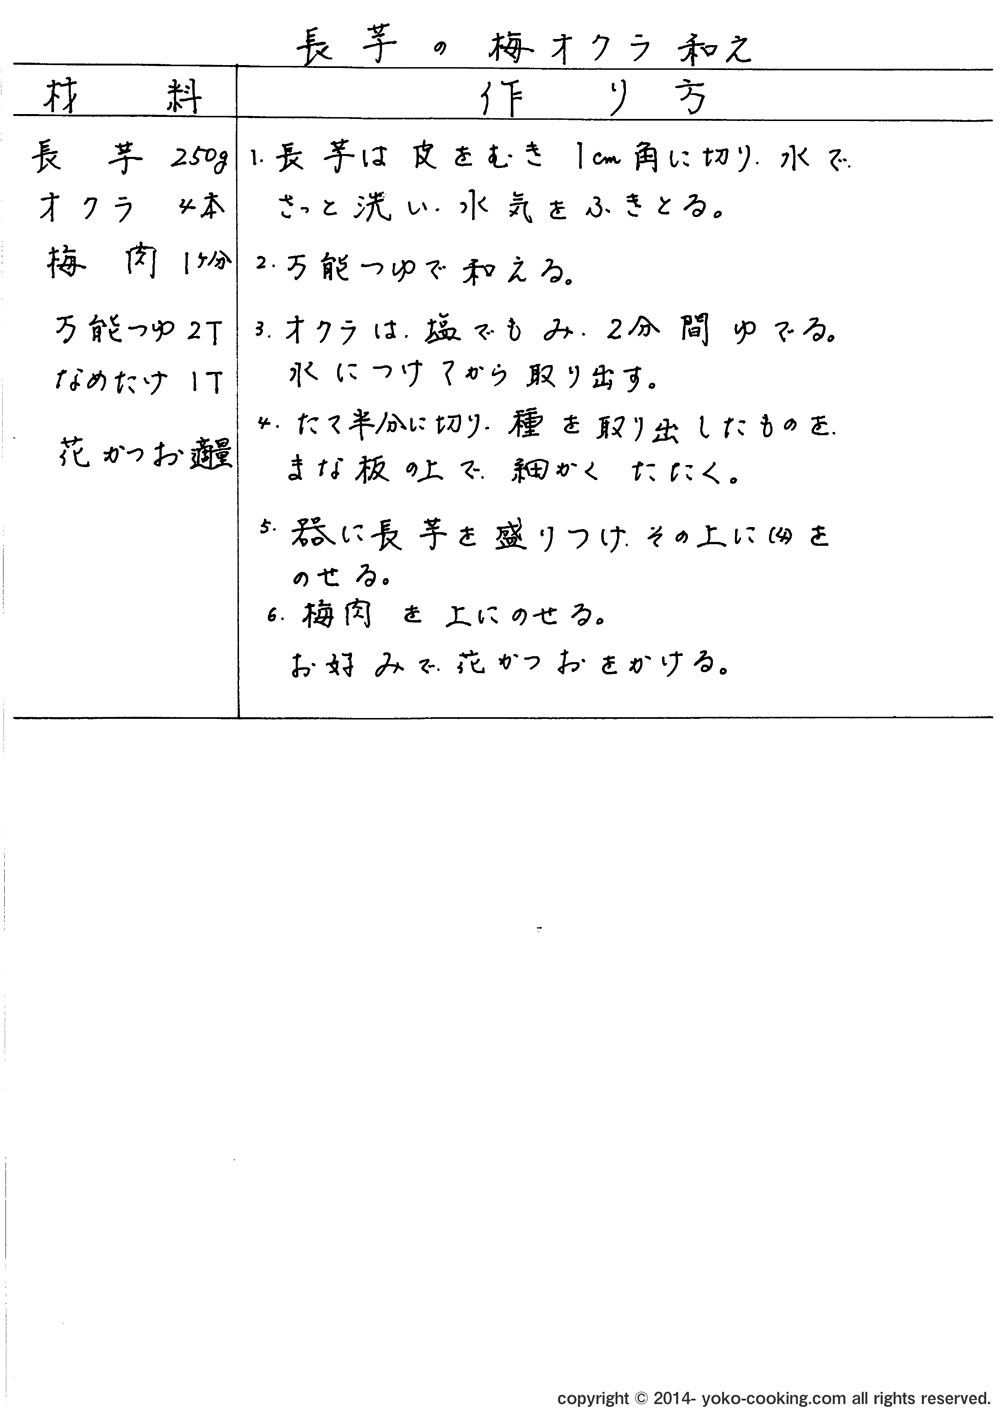 長芋の梅オクラ和え
材料
作り方
長芋 250g
オクラ 4本
梅肉 1ヶ分
万能つゆ 2T
なめたけ 1T
花かつお 適量
1. 長芋は皮をむき 1cm角に切り、水で、
さっと洗い、水気をふきとる。
2. 万能つゆで和える。
3. オクラは、塩でもみ、2分間ゆでる。
氷につけてから取り出す。
4. たて半分に切り、種を取り出したものを、
まな板の上で、細かくたたく。
5. 器に長芋を盛りつけ、その上に(4)を
のせる。
6. 梅肉を上にのせる。
お好みで、花かつおをかける。
copyright © 2014- yoko-cooking.com all rights reserved.